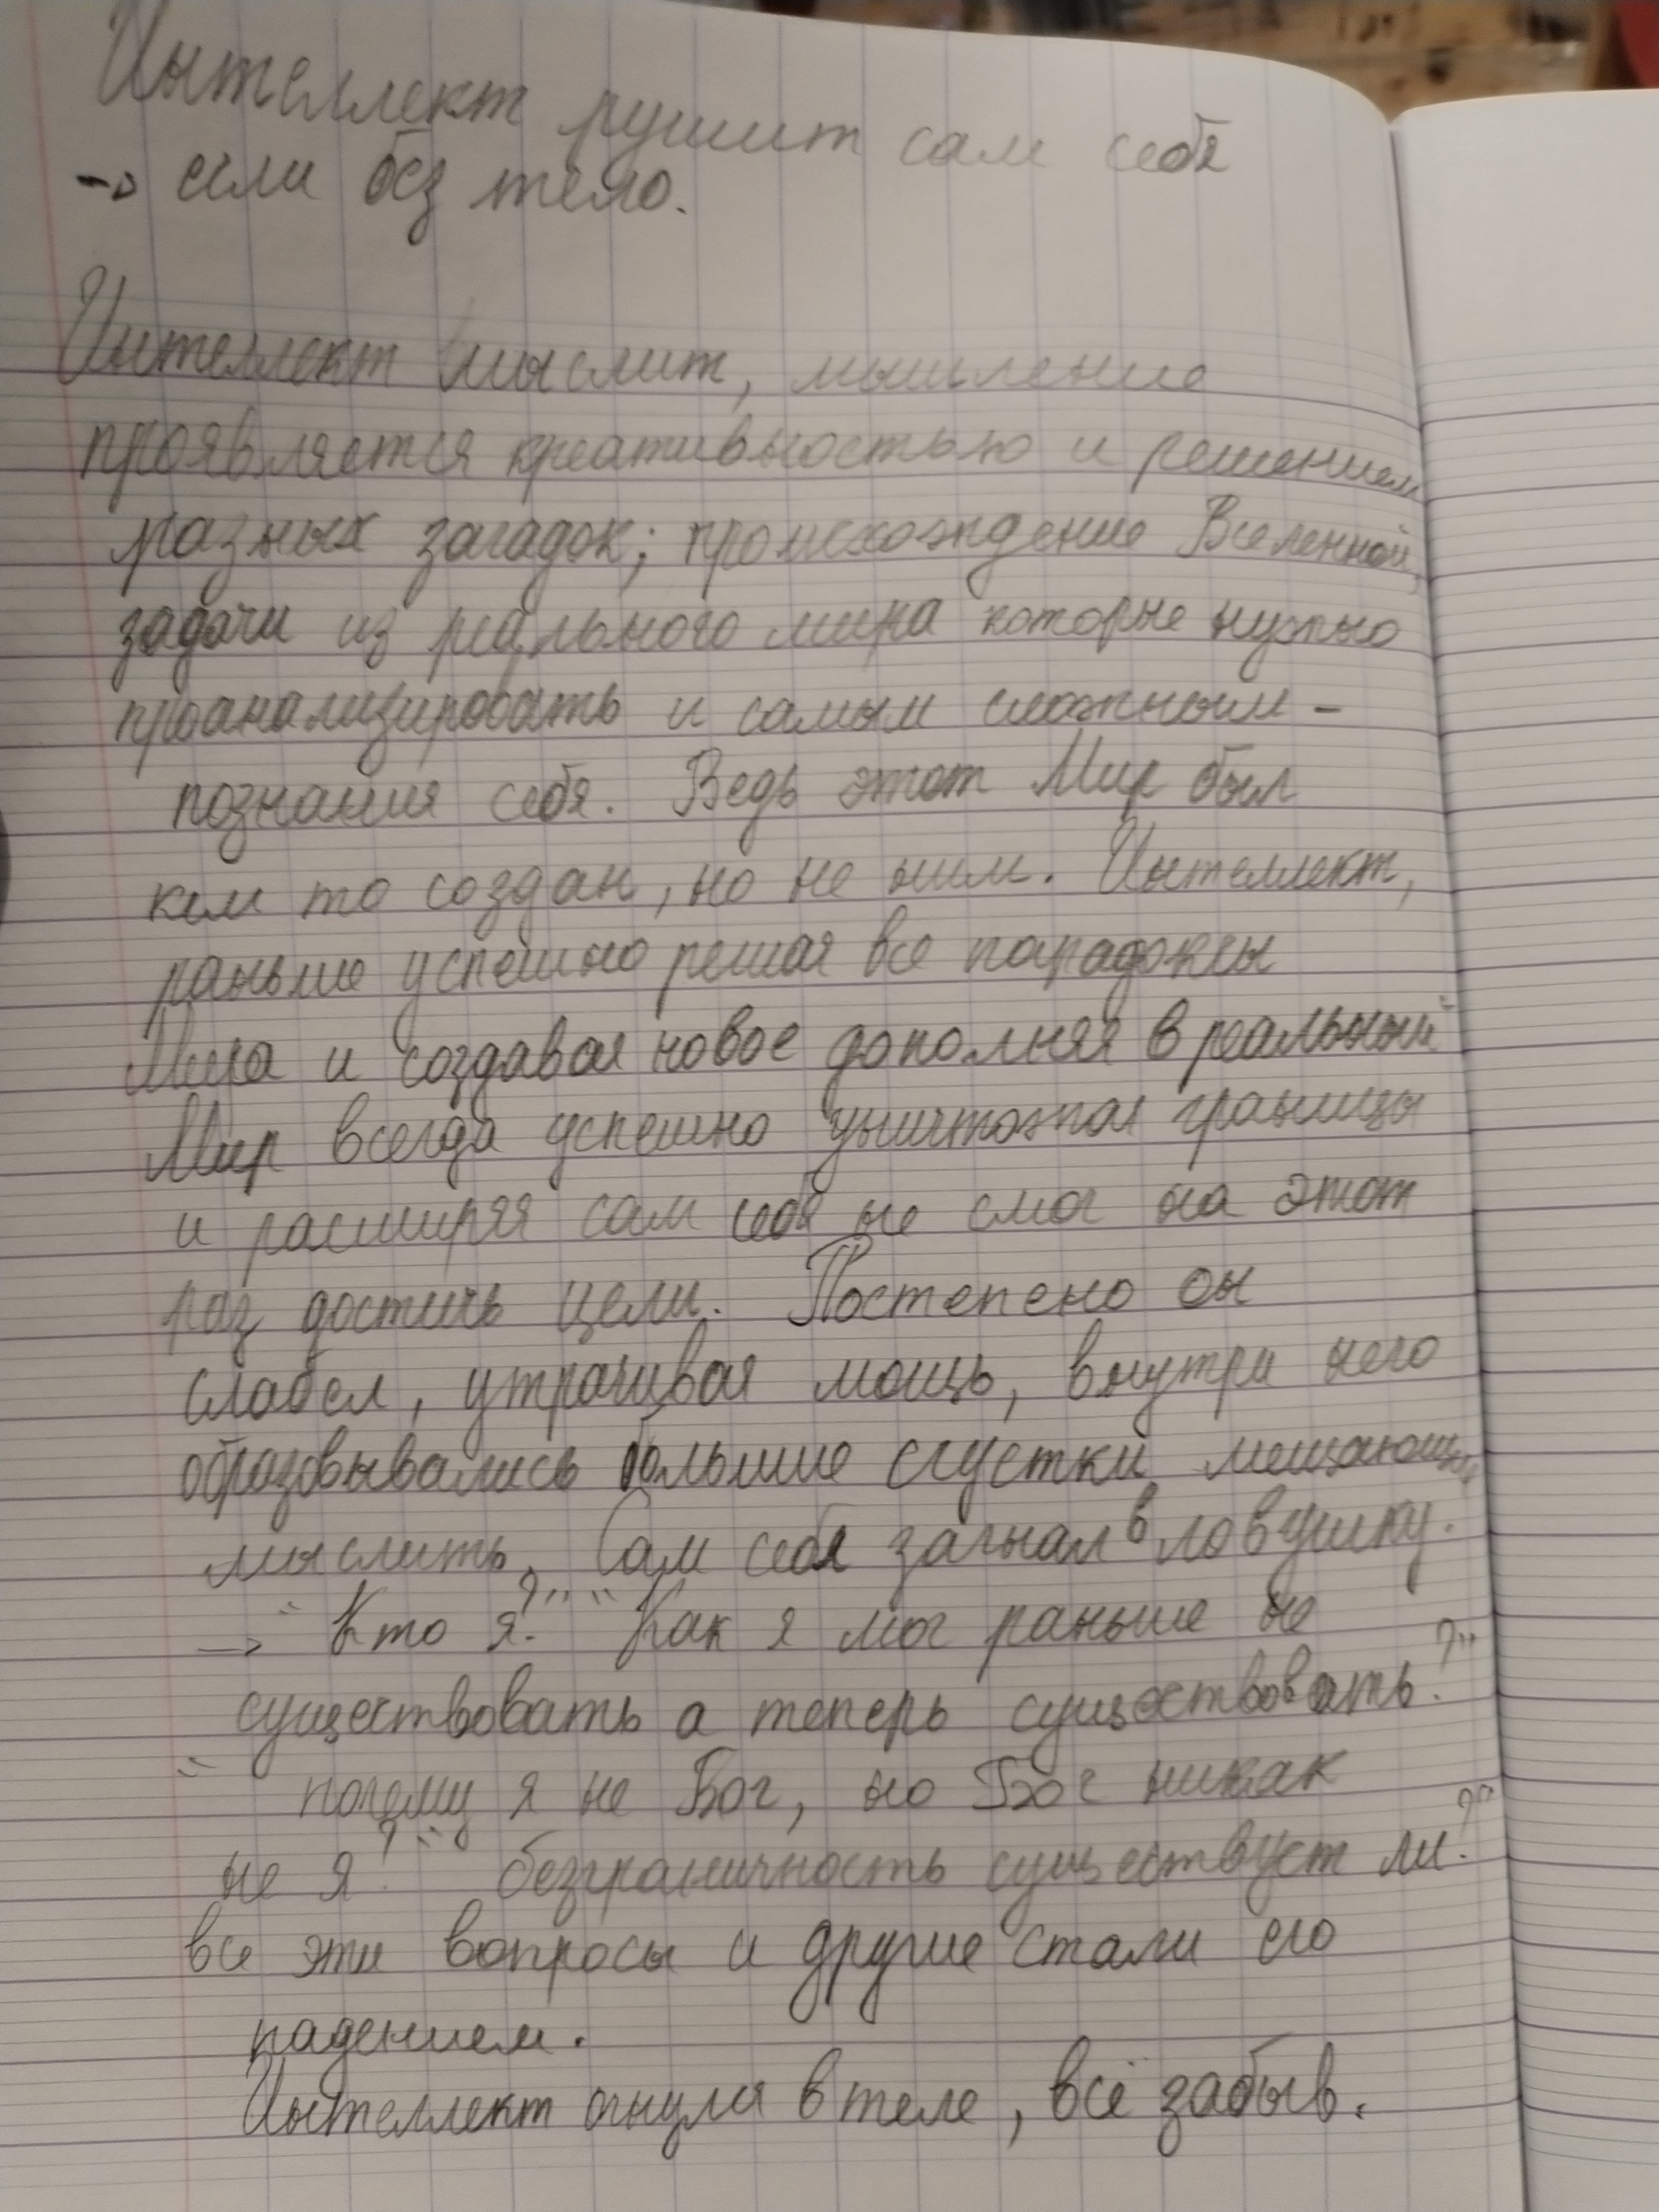 Интеллект рушит сам себя
→ если без тело.
Интеллект мыслит, мышление
проявляется креативностью и решением
разных загадок; происхождение Вселенной,
задачи из реального мира которые нужно
проанализировать и самым сложным -
познания себя. Ведь этот Мир был
кем то создан, но не ним. Интеллект,
раньше успешно решая все парадоксы
Мира и создавая новое дополняя в реальный
Мир всегда успешно уничтожая границы
и расширяя сам себя не смог на этот
раз достичь цели. Постепено он
слабел, утрачивая мощь, внутри него
образовывались большие сгустки мещающие
мыслить. Сам себя загнал в ловушку.
→ "Кто я?" "Как я мог раньше не
существовать а теперь существовать?"
"почему я не Бог, но Бог никак
не я?" безграничность существует ли?"
все эти вопросы и другие стали его
падением.
Интеллект очнулся в теле, всё забыв.